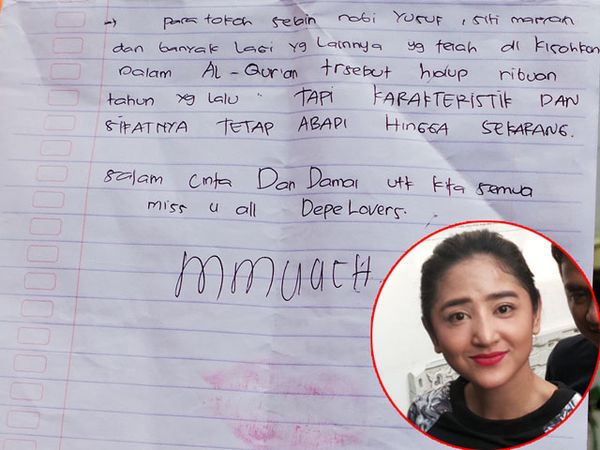 → para tokoh selain nabi Yusuf, siti maryam
dan banyak lagi yg lainnya yg telah di kisahkan
Dalam AL-Qur'an trsebut hidup ribuan
tahun yg lalu TAPI KARAKTERISTIK DAN
SIFATNYA TETAP ABADI HINGGA SEKARANG.
salam cinta Dan Damai utk kita semua
miss u all DepeLovers.
MMUACH.